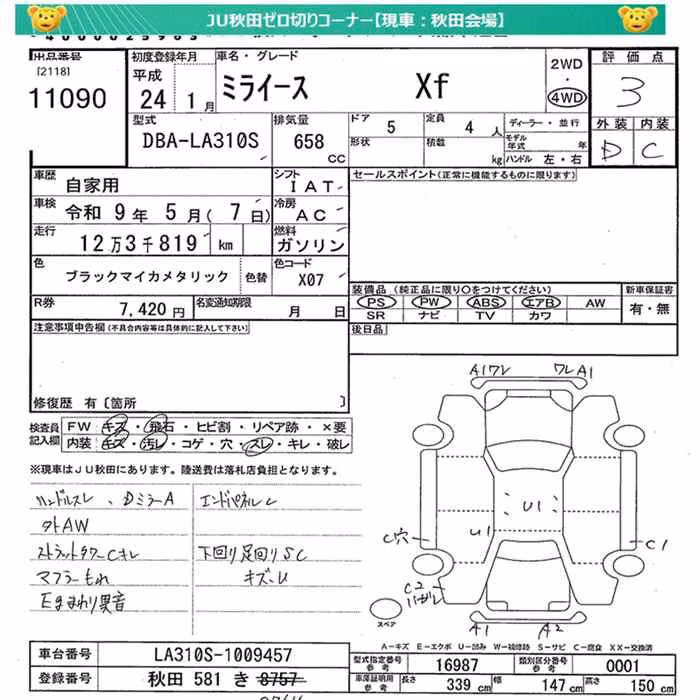 JU秋田ゼロ切りコーナー【現車：秋田会場】
出品番号
[2118]
11090
初度登録年月
平成
24 1月
車名・グレード
ミライース Xf
2WD
・
4WD
評価点
3
外装 内装
D C
型式
DBA-LA310S
排気量
658
CC
ドア 5
形状
定員 4人
積載 kg
ディーラー・並行
モデル年式 年
ハンドル 左・右
車歴 自家用
シフト IAT
セールスポイント(正常に機能するものに限ります)
車検 令和 9年 5月( 7日)
冷房 AC
走行 12万3千819 km
燃料 ガソリン
色 ブラックマイカメタリック 色替
色コード X07
装備品(純正品に限り○をつけてください)
PS PW ABS エアB AW
SR ナビ TV カワ
新車保証書
有・無
R券 7,420円
名変通知期限 月 日
後日品
注意事項申告欄(不具合内容等は具体的に記入して下さい)
修復歴 有〔箇所 〕
検査員記入欄
FW キズ・飛石・ヒビ割・リペア跡・×要
内装 キズ・汚レ・コゲ・穴・スレ・キレ・破レ
※現車はJU秋田にあります。陸送費は落札店負担となります。
ハンドルスレ、DミラーA
エンドパネルC
タトAW
ストラットタワーCキレ
下回り足回りSC
マフラーもれ
キズ・U
Eまわり異音
A1ワレ ワレA1
U1
U1
C穴
C1
C2
ハガレ
A1 A2
スペア
A－キズ E－エクボ U－凹み W－補修跡 S－サビ C－腐食 XX－交換済
車台番号 LA310S-1009457
登録番号 秋田 581 き 8757
型式指定番号 参考 16987
類別区分番号 参考 0001
車庫証明用 参考
長さ 339 cm
幅 147 cm
高さ 150 cm